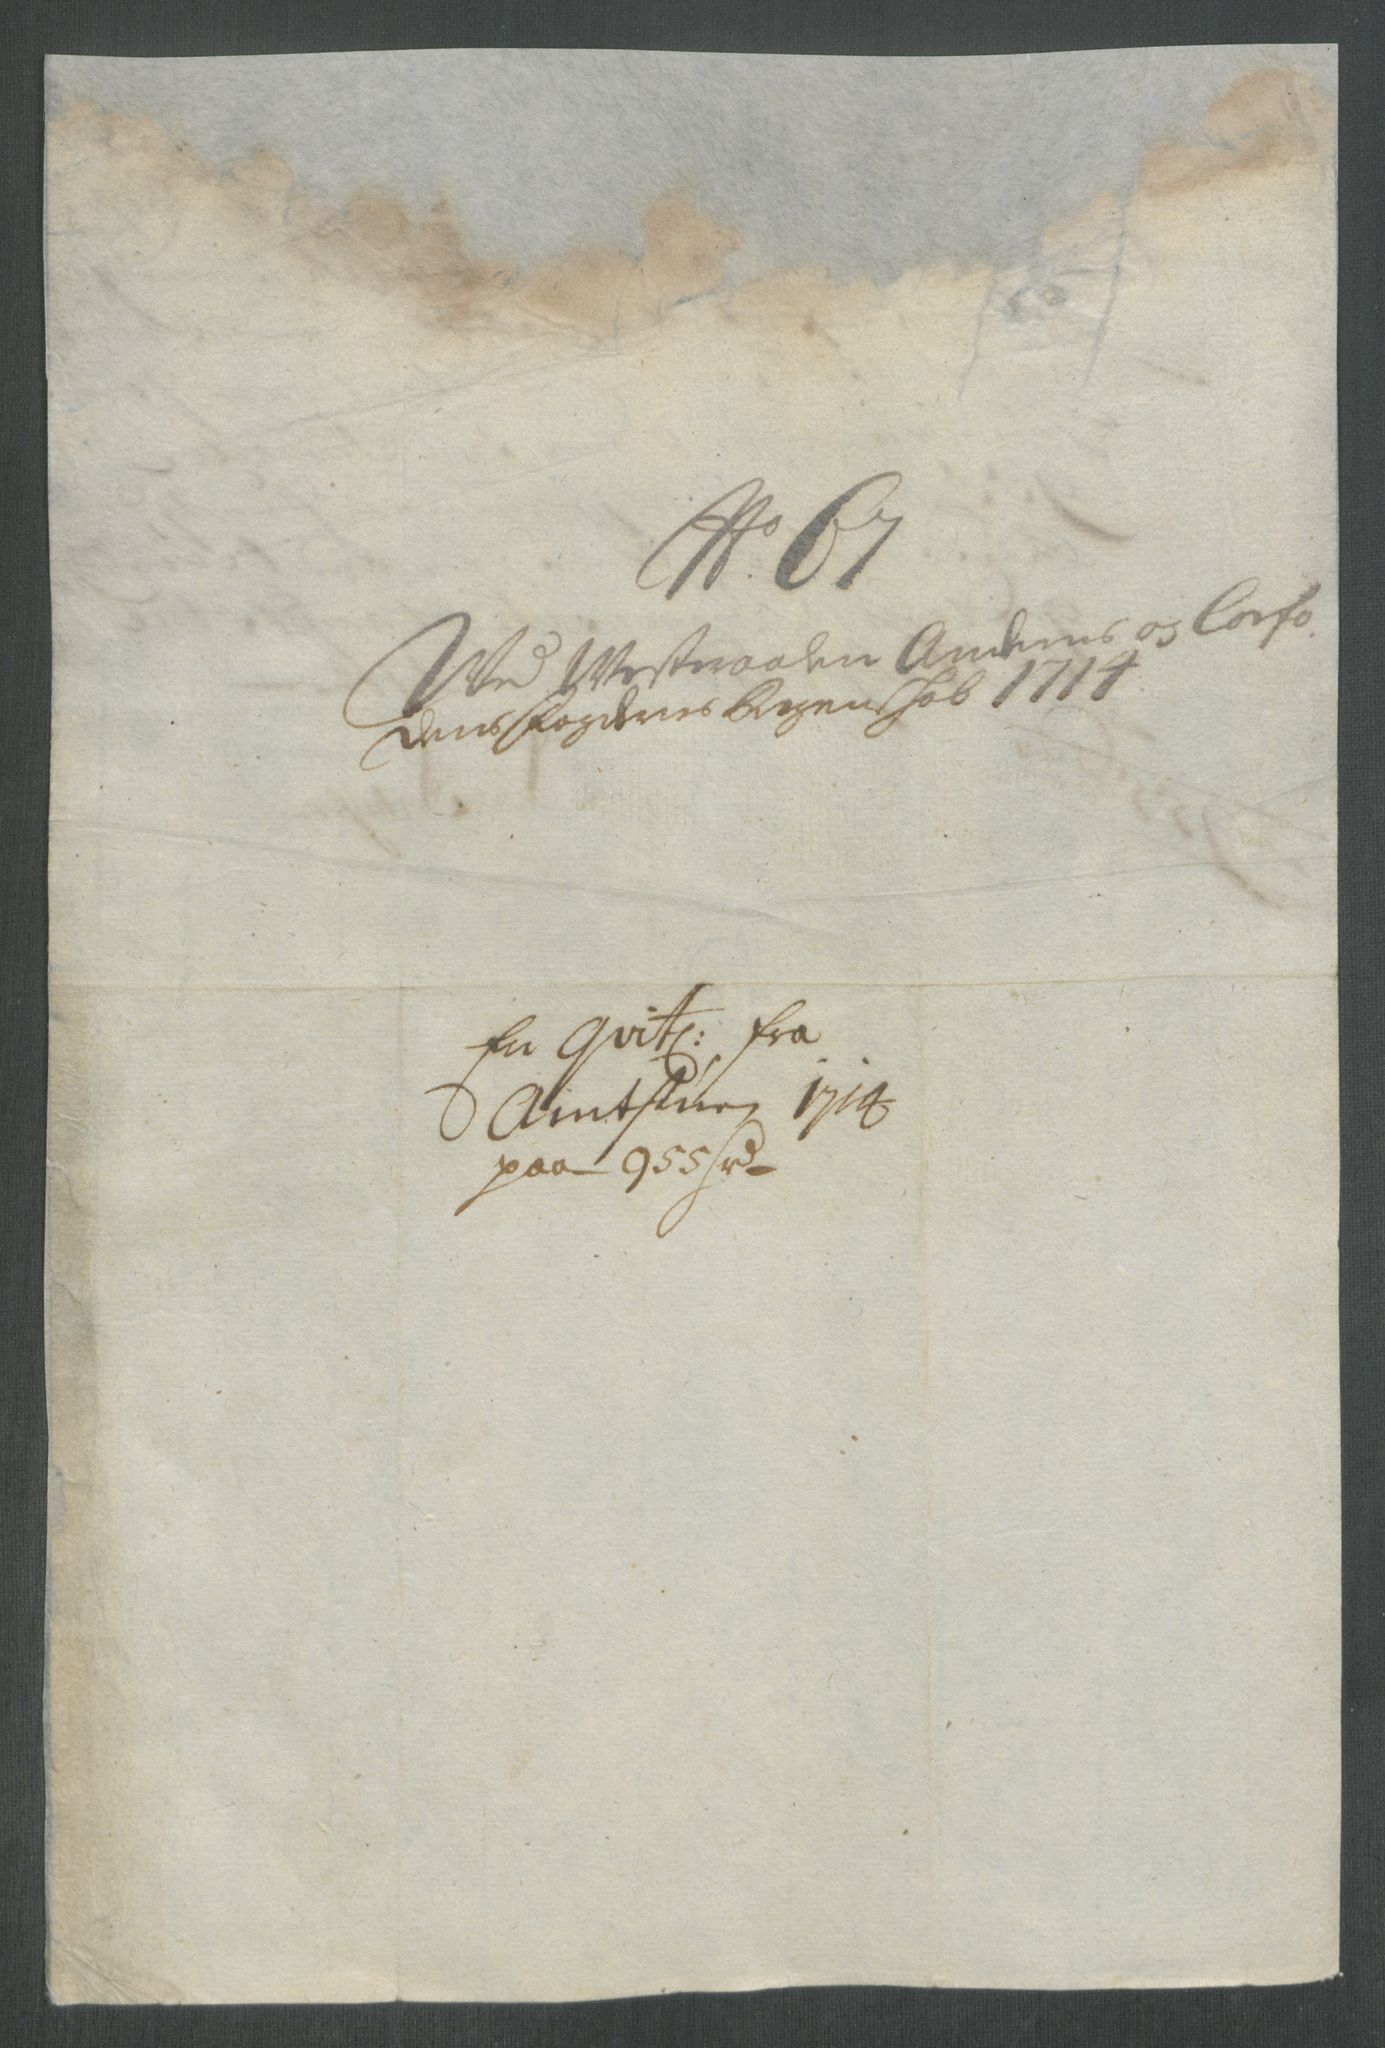 No. 67
Wed Westeraalen Andenes og Lofo
dens fogderies Regenskab 1714
En Qvit: fra
Amtstuen 1714
paa 955 rd